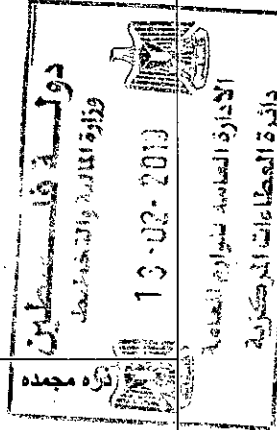 دولة فلسطين
وزارة المالية والتخطيط
13-02-2019
الإدارة العامة للوازم العامة
دائرة العطاءات المركزية
ذره مجمده